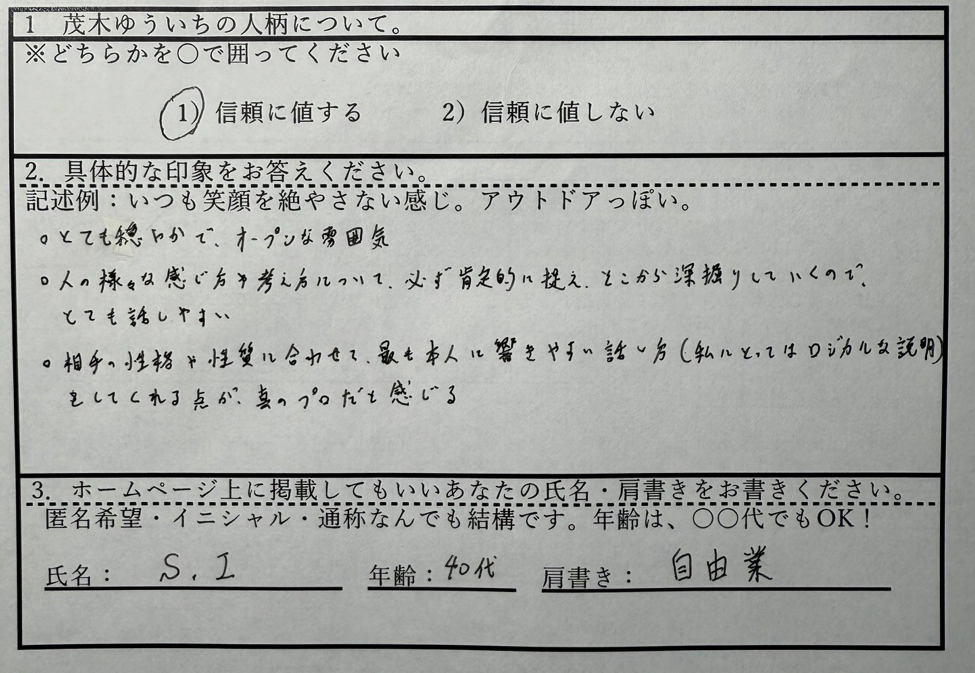 1 茂木ゆういちの人柄について。
※どちらかを〇で囲ってください
1) 信頼に値する 2) 信頼に値しない
2. 具体的な印象をお答えください。
記述例：いつも笑顔を絶やさない感じ。アウトドアっぽい。
○とても穏やかで、オープンな雰囲気
○人の様々な感じ方や考え方について、必ず肯定的に捉え、そこから深掘りしていくので、
とても話しやすい
○相手の性格や性質に合わせて、最も本人に響きやすい話し方(私にとってはロジカルな説明)
をしてくれる点が、真のプロだと感じる
3. ホームページ上に掲載してもいいあなたの氏名・肩書きをお書きください。
匿名希望・イニシャル・通称なんでも結構です。年齢は、〇〇代でもOK！
氏名： S. I 年齢：40代 肩書き： 自由業